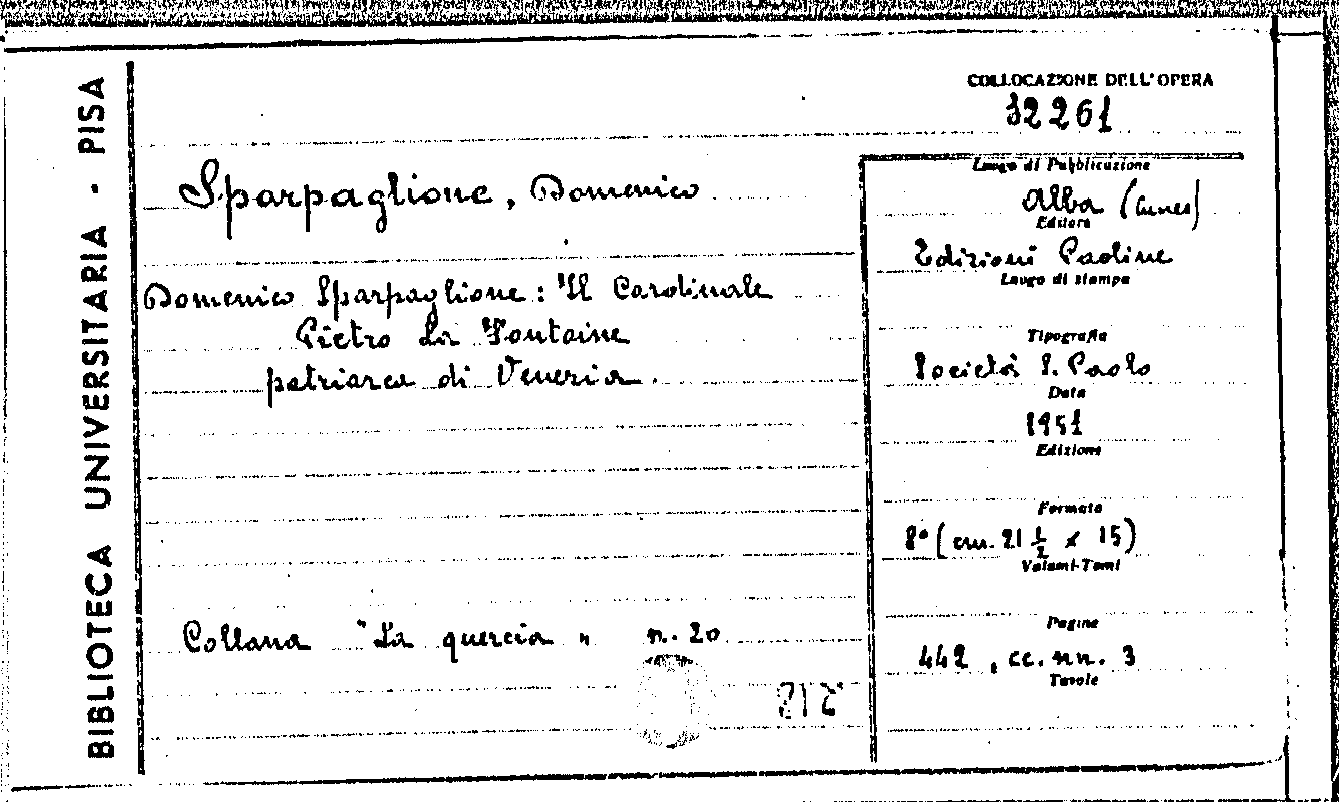 BIBLIOTECA UNIVERSITARIA - PISA
COLLOCAZIONE DELL'OPERA
32261
Sparpaglione, Domenico
Domenico Sparpaglione: Il Cardinale
Pietro La Fontaine
patriarca di Venezia.
Collana "La quercia" n. 20
Luogo di Pubblicazione
Alba (Cuneo)
Editore
Edizioni Paoline
Luogo di stampa
Tipografia
Società S. Paolo
Data
1951
Edizione
Formato
8° (cm. 21 1/2 x 15)
Volumi-Tomi
Pagine
442, cc. nn. 3
Tavole